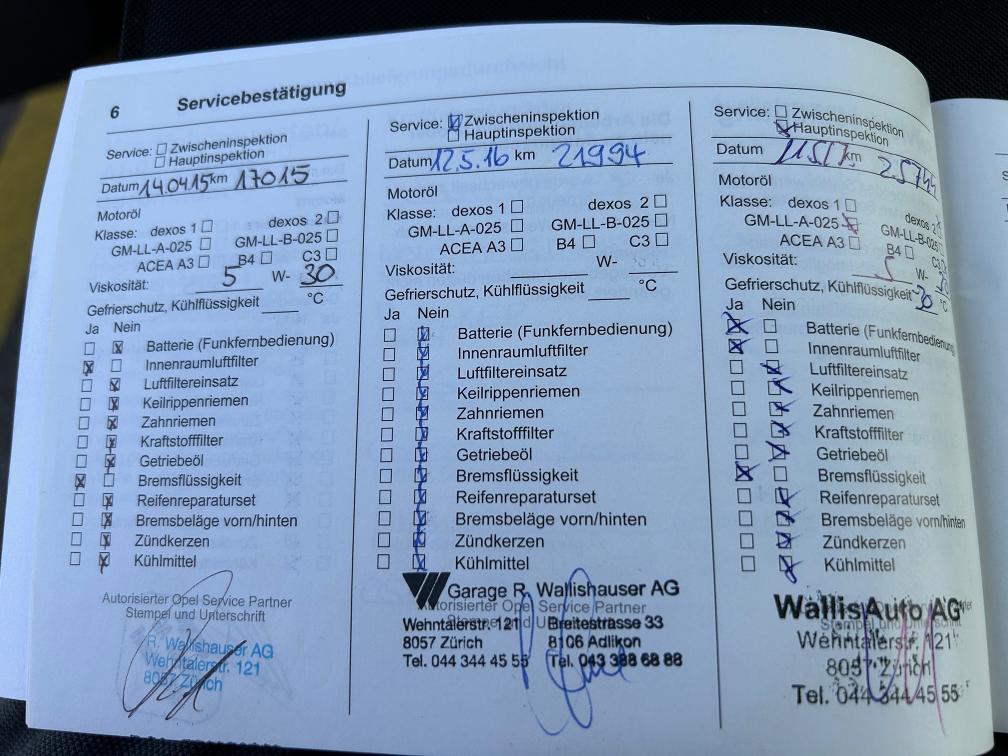 6 Servicebestätigung
Service: Zwischeninspektion
Hauptinspektion
Datum 14.04.15 km 17015
Motoröl
Klasse: dexos 1 dexos 2
GM-LL-A-025 GM-LL-B-025
ACEA A3 B4 C3
Viskosität: 5 W- 30
Gefrierschutz, Kühlflüssigkeit °C
Ja Nein
Batterie (Funkfernbedienung)
Innenraumluftfilter
Luftfiltereinsatz
Keilrippenriemen
Zahnriemen
Kraftstofffilter
Getriebeöl
Bremsflüssigkeit
Reifenreparaturset
Bremsbeläge vorn/hinten
Zündkerzen
Kühlmittel
Autorisierter Opel Service Partner
Stempel und Unterschrift
R. Wallishauser AG
Wehntalerstr. 121
8057 Zürich
Service: Zwischeninspektion
Hauptinspektion
Datum 12.5.16 km 21994
Motoröl
Klasse: dexos 1 dexos 2
GM-LL-A-025 GM-LL-B-025
ACEA A3 B4 C3
Viskosität: W-
Gefrierschutz, Kühlflüssigkeit °C
Ja Nein
Batterie (Funkfernbedienung)
Innenraumluftfilter
Luftfiltereinsatz
Keilrippenriemen
Zahnriemen
Kraftstofffilter
Getriebeöl
Bremsflüssigkeit
Reifenreparaturset
Bremsbeläge vorn/hinten
Zündkerzen
Kühlmittel
Garage R. Wallishauser AG
Autorisierter Opel Service Partner
Wehntalerstr. 121 Breitestrasse 33
8057 Zürich 8106 Adlikon
Tel. 044 344 45 55 Tel. 043 388 68 88
Service: Zwischeninspektion
Hauptinspektion
Datum km
Motoröl
Klasse: dexos 1 dexos 2
GM-LL-A-025 GM-LL-B-025
ACEA A3 B4 C3
Viskosität: 5 W-
Gefrierschutz, Kühlflüssigkeit -30 °C
Ja Nein
Batterie (Funkfernbedienung)
Innenraumluftfilter
Luftfiltereinsatz
Keilrippenriemen
Zahnriemen
Kraftstofffilter
Getriebeöl
Bremsflüssigkeit
Reifenreparaturset
Bremsbeläge vorn/hinten
Zündkerzen
Kühlmittel
WallisAuto AG
Wehntalerstr. 121
8057 Zürich
Tel. 044 344 45 55